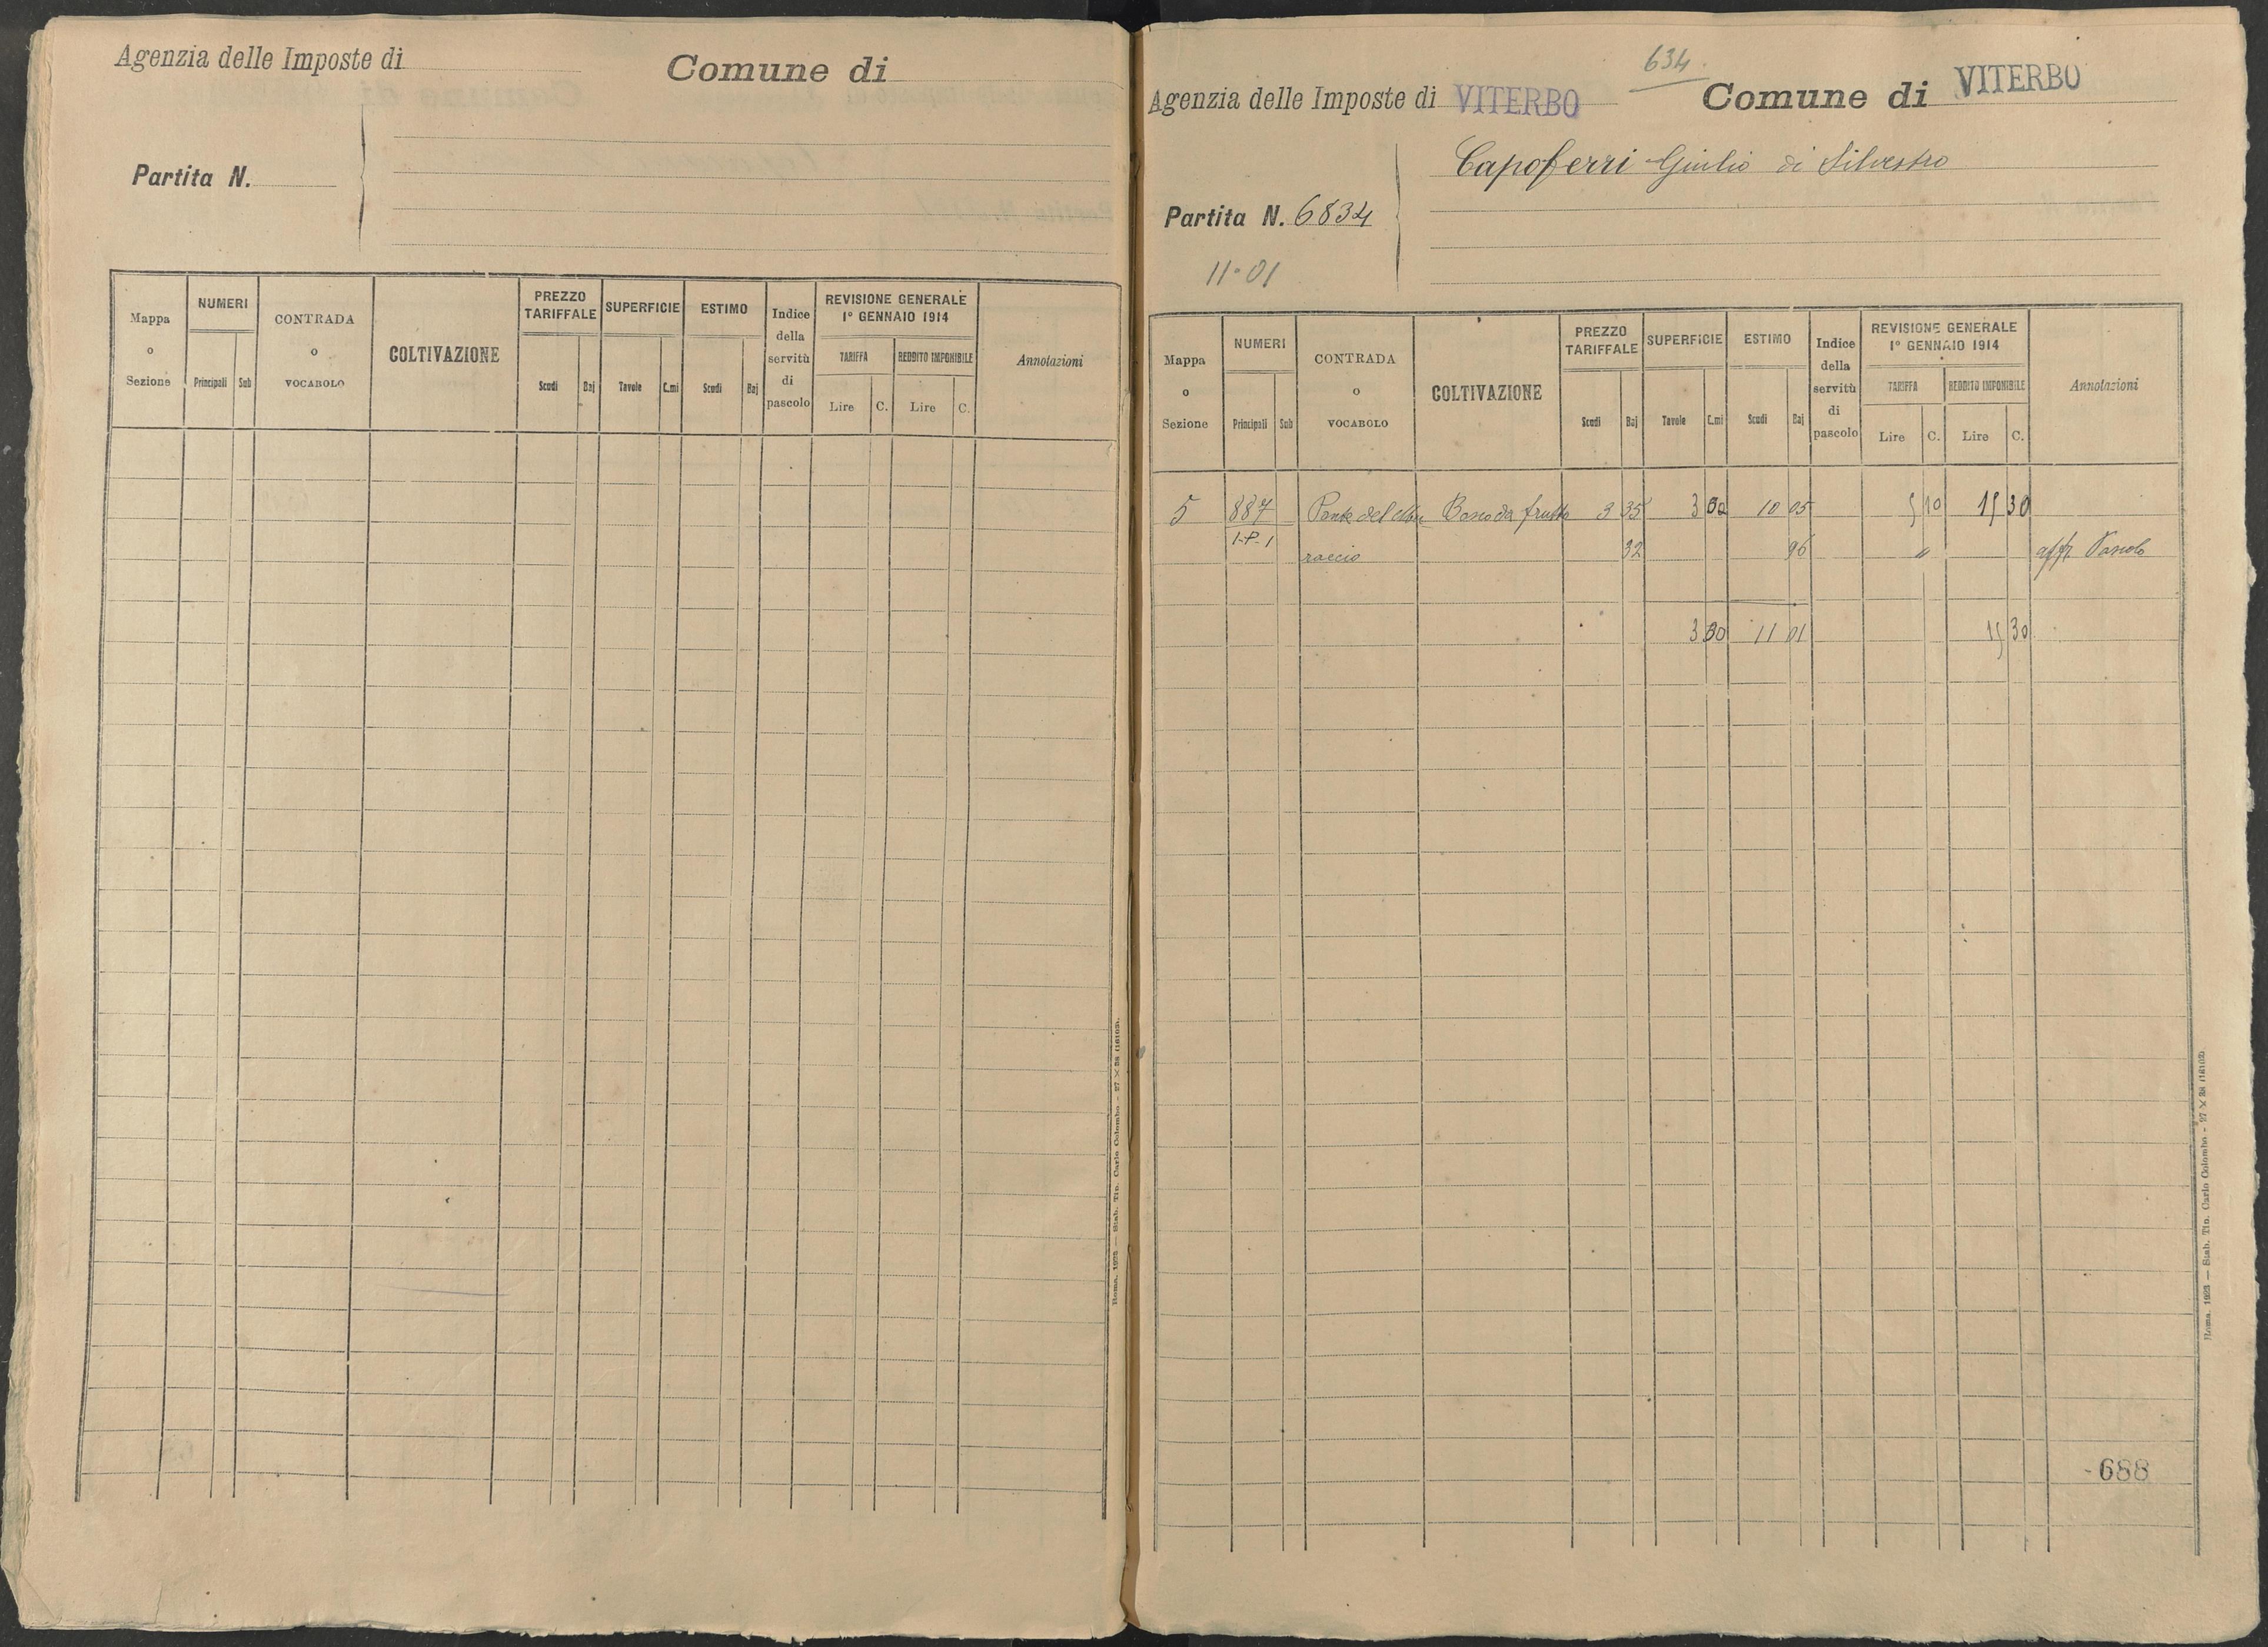 Agenzia delle Imposte di
Comune di
Partita N.
Mappa o Sezione
NUMERI
Principali Sub
CONTRADA o VOCABOLO
COLTIVAZIONE
PREZZO TARIFFALE
Scudi Baj
SUPERFICIE
Tavole C.mi
ESTIMO
Scudi Baj
Indice della servitù di pascolo
REVISIONE GENERALE
1° GENNAIO 1914
TARIFFA
Lire C.
REDDITO IMPONIBILE
Lire C.
Annotazioni
Roma. 1923 — Stab. Tip. Carlo Colombo - 27 X 38 (16103).
634
Agenzia delle Imposte di VITERBO
Comune di VITERBO
Capoferri Giulio di Silvestro
Partita N. 6834
11.01
Mappa o Sezione
NUMERI
Principali Sub
CONTRADA o VOCABOLO
COLTIVAZIONE
PREZZO TARIFFALE
Scudi Baj
SUPERFICIE
Tavole C.mi
ESTIMO
Scudi Baj
Indice della servitù di pascolo
REVISIONE GENERALE
1° GENNAIO 1914
TARIFFA
Lire C.
REDDITO IMPONIBILE
Lire C.
Annotazioni
5 887 del Bosco da frutto 3 35 3 00 10 05 5 10 15 30
1-P-1 raccio 32 96 " aff. Pascolo
3 00 11 01 15 30
688
Roma. 1923 — Stab. Tip. Carlo Colombo - 27 X 38 (16103).